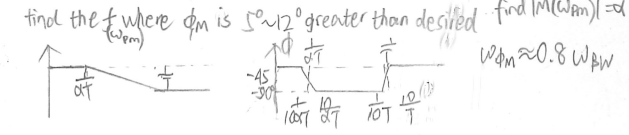 find the f where ϕM is 5°~12° greater than desired find |M(ωPM)| = α
(ωPM)
ωϕM ≈ 0.8 ωBW
ϕ
1/αT 1/T
1/αT 1/T
-45
-90
10/αT 1/10T 10/T